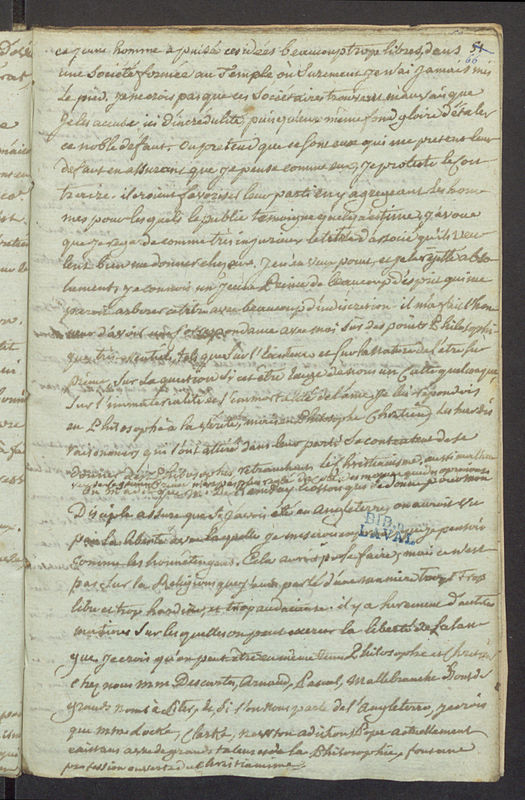 ce jeune homme a puisé ces idées beaucoup trop libres, dans
une Société formée au Temple où Surement je n'ai jamais mis
le pied. je ne crois pas que ces Sociétaires trouvent mauvais que
je les accuse ici d'incrédulité puisqu'eux même font gloire d'étaler
ce noble defaut. On pretend que ce sont eux qui me pretent leur
defaut en assurant que je pense comme eux, je proteste le Con-
traire. ils croient favoriser leur parti en y agregeant des hom-
mes pour lesquels le public temoigne quelqu'estime, j'avoue
que je regarde comme très injurieux le titre d'associé qu'ils veu-
lent bien me donner chez eux, je n'en veux point, et je le rejette abso-
lument, je connois un jeune Prince de beaucoup d'esprit qui me
paroit arborer ce titre avec beaucoup d'indiscretion. il m'a fait l'hon-
neur d'avoir une Correspondance avec moi Sur des points Philosophi-
ques tels que Sur l'Existence et Sur la Nature de l'être Su-
prême, Sur la question S'il est être exige de nous un Culte quelconque
Sur l'immaterialité et l'immortalité de l'ame, je lui repondois
en Philosophe à la Verité, mais en Philosophe Chrétien, les hardis
raisonneurs qui l'ont attiré dans leur parti Se contentent de se
donner de Philosophes retranchant le Christianisme,
On m'a dit que M. de Ramsay
Disciple assure que Si j'avois été en Angleterre on auroit vu
par la liberté avec laquelle je que je pensois
comme les honnêtes gens. Cela auroit pu se faire, mais ce n'est
pas Sur la Religion que j'eus parlé d'une maniere trop
libre et trop hardie et trop audacieuse. il y a surement d'autres
matieres Sur lesquelles on peut exercer la liberté de la lan-
gue. Je crois qu'on peut être en même tems Philosophe et Chrétien
chez nous mrs Descartes, Arnaud, Pascal, Mallebranche Sont de
grands noms à Citer, et Si l'on nous parle de l'Angleterre, je crois
que mrs Locke, Clarke, newton adisson Pope actuellement
vivant assez de grands talens et de la Philosophie, font une
profession ouverte du Christianisme.
51
66
BIB.
LAVAL